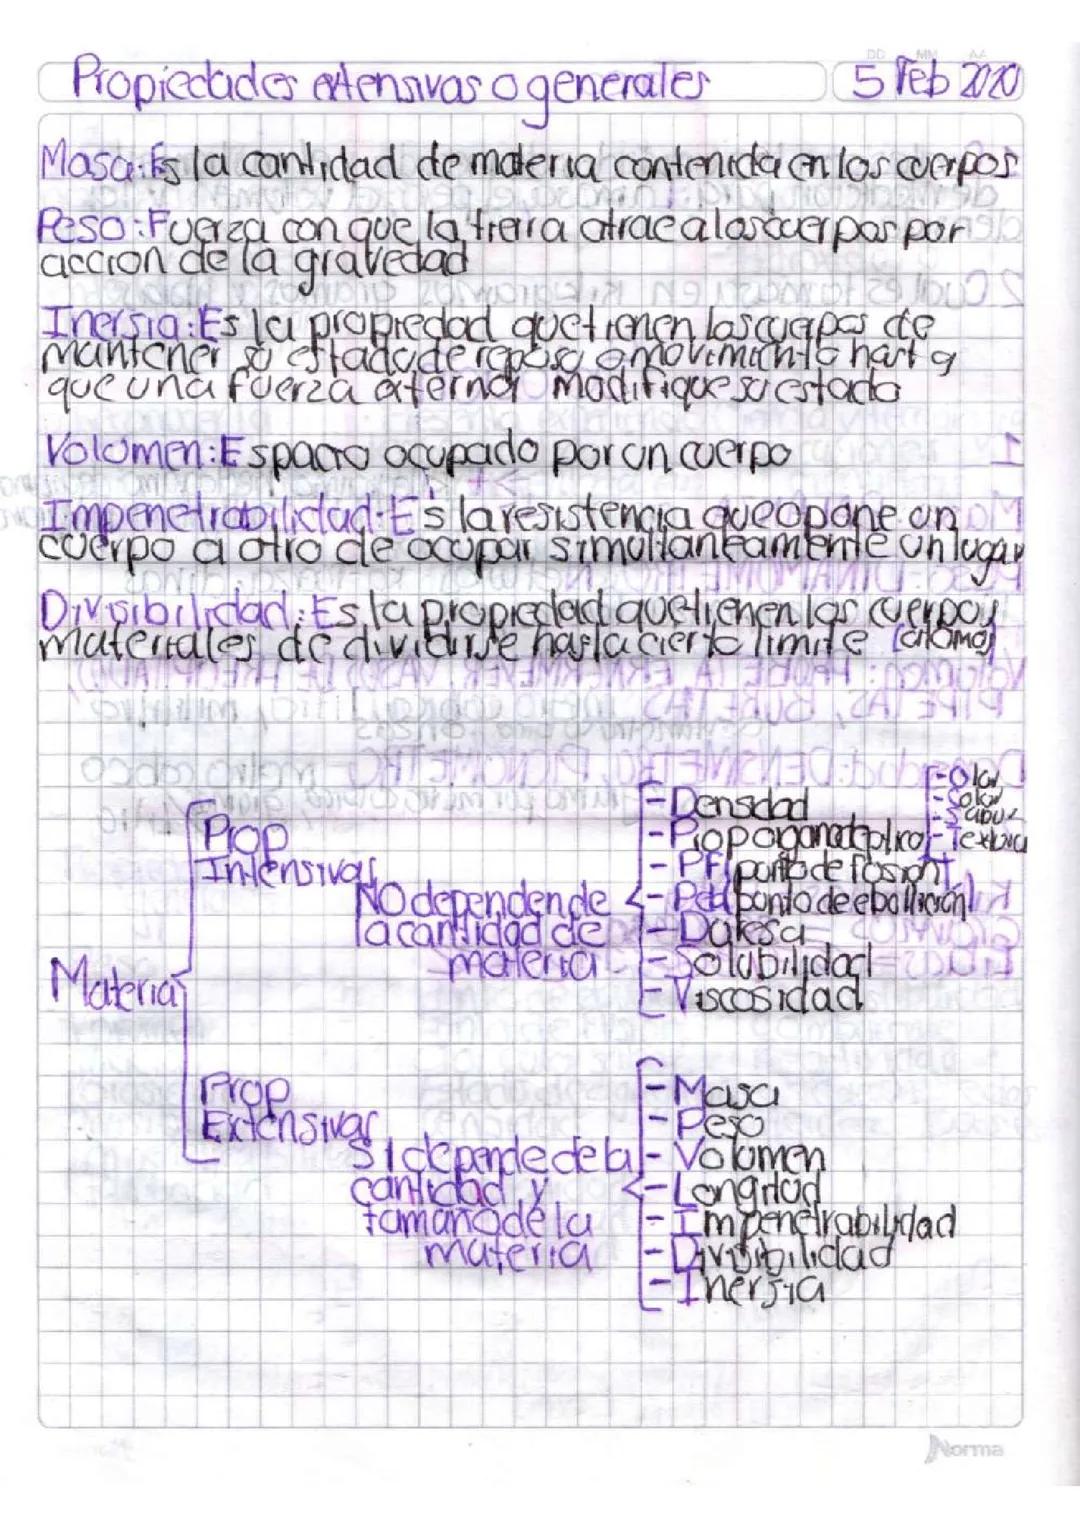 Propiedades extensivas o generales
DD MM AA
5 Feb 2020
Masa: Es la cantidad de materia contenida en los cuerpos
Peso: Fuerza con que la trerra atrae a los cuerpos por
accion de la gravedad
Inersia: Es la propiedad que tienen los cuerpos de
mantener su estado de reposo o movimiento hasta
que una fuerza externa modifique su estado
Volumen: Espacio ocupado por un cuerpo
Impenetrabilidad: Es la resistencia que opone un
cuerpo a otro de ocupar simultaneamente un lugar
Divisibilidad: Es la propiedad que tienen los cuerpos y
materiales de dividirse hasta cierto limite (atomo)
Materia
Prop
Intensivas
NO dependen de
la cantidad de
materia
- Densidad
- Prop organoleptico
- Olor
- Color
- Sabor
- Textura
- PF (punto de fusion)
- Peb (punto de ebollición)
- Dureza
- Solubilidad
- Viscosidad
Prop
Extensivas
Si depende de la
cantidad y
tamaño de la
materia
- Masa
- Peso
- Volumen
- Longitud
- Impenetrabilidad
- Divisibilidad
- Inersia
Norma